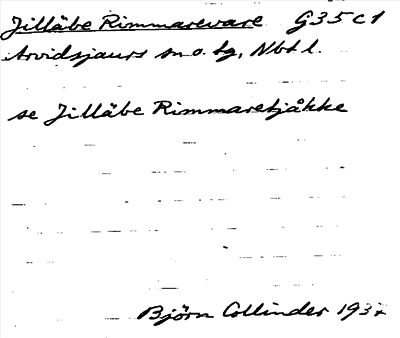 Jilläbe Rimmarevare G35c1
Arvidsjaurs sn o. tg, Nbt l.
se Jilläbe Rimmaretjåkke
Björn Collinder